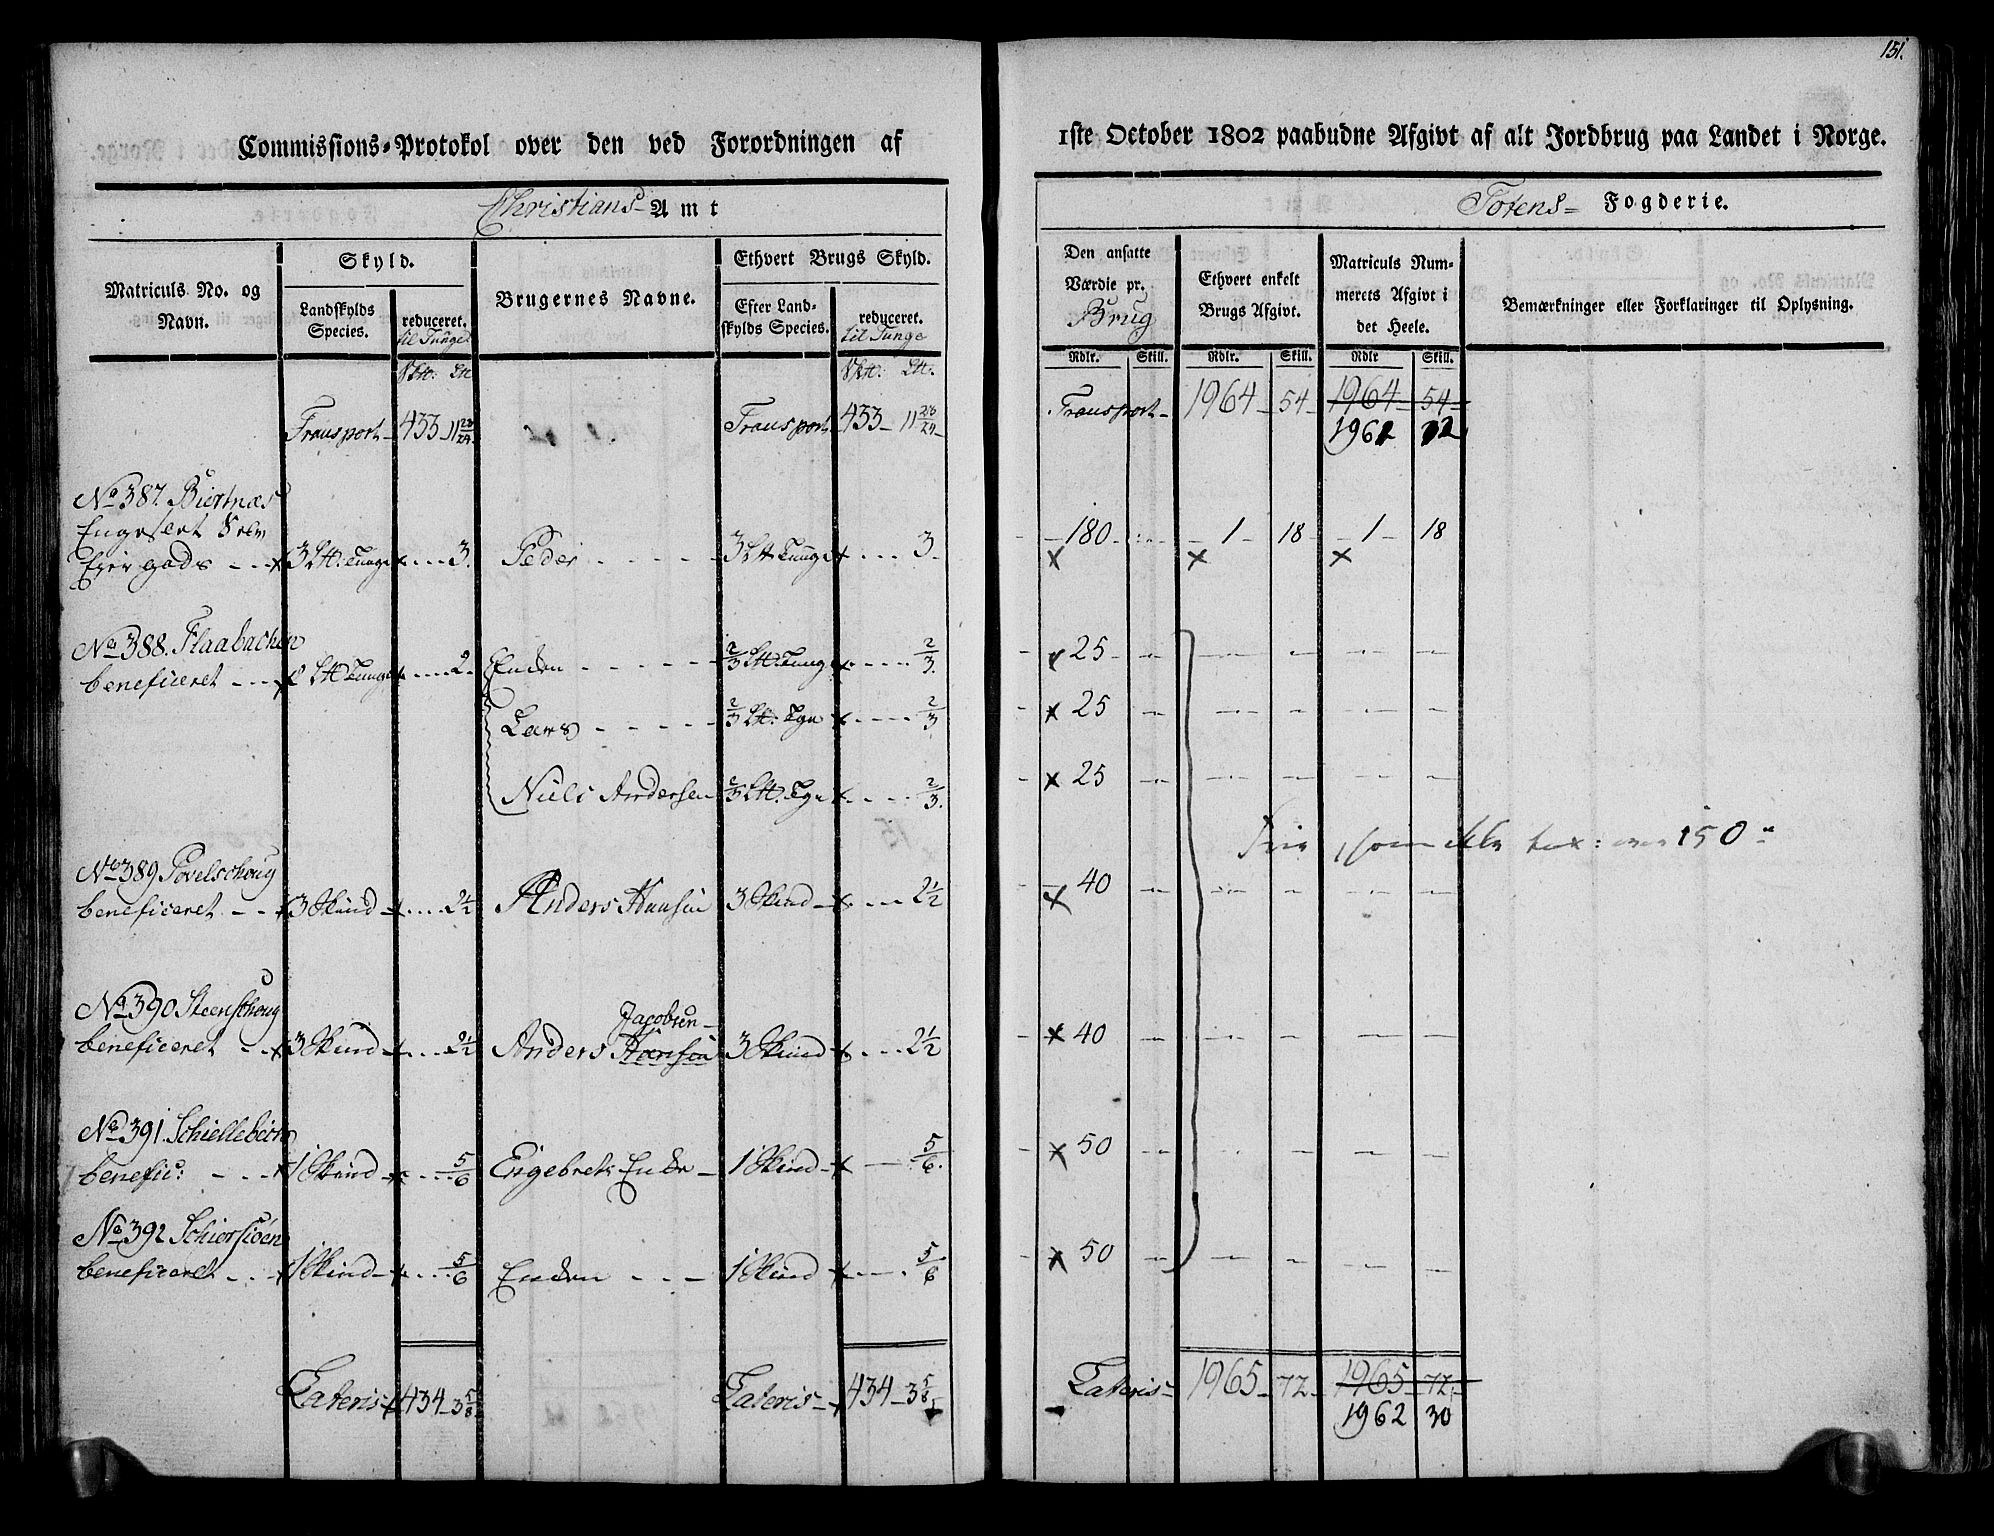 151.
Commissions-Protokol over den ved Forordningen af
1ste October 1802 paabudne Afgivt af alt Jordbrug paa Landet i Norge.
Christians Amt
Totens- Fogderie.
Matriculs No. og Navn.
Skyld.
Landskylds Species.
reduceret. til Tunge
Brugernes Navne.
Ethvert Brugs Skyld.
Efter Landskylds Species.
reduceret. til Tunge
Den ansatte Værdie pr. Brug
Ethvert enkelt Brugs Afgivt.
Matriculs Nummerets Afgivt i det Heele.
Bemærkninger eller Forklaringer til Oplysning.
Rdlr. Skill. Rdlr. Skill. Rdlr Skill.
Transport- 433 11 23/24 Transport 433- 11 23/24 Transport- 1964- 54- 1964- 54-
1962
No 387. Biertnæs
Engesert Selv
Ejer gods 3 Ltt: Tunge 3. Peder 3 Ltt Tunge 3- 180 1 18 1 18
No 388. Flaabachen
beneficeret 2 Ltt Tunge 2. Enken 2/3 Ltt. Tunge 2/3. 25
Lars 2/3 Ltt: Tge 2/3 25
Niels Andersen 2/3 Ltt. Tge 2/3. 25
Frie, som ikke tax: over 150
No 389 Povelschoug
beneficeret 3 Skind 2 1/2 Anders Hansen 3 Skind 2 1/2 40
No 390 Steenschoug
beneficeret 3 Skind 2 1/2 Anders Hansen Jacobsen 3 Skind 2 1/2 40
No 391.
benefic: 1 Skind 5/6 Engebret Enke 1 Skind 5/6. 50
No 392 Schiersiøen
beneficeret 1 Skind 5/6 Enken 1 Skind 5/6 50
Lateris 434 3 5/8 Lateris 434- 3 5/8 Lateris- 1965- 72- 1965- 72-
1962 30